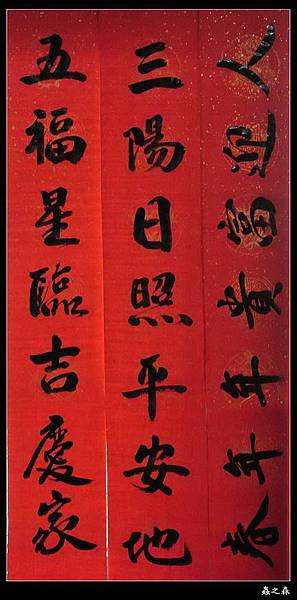 人迎富貴年年春
三陽日照平安地
五福星臨吉慶家
蟲之森